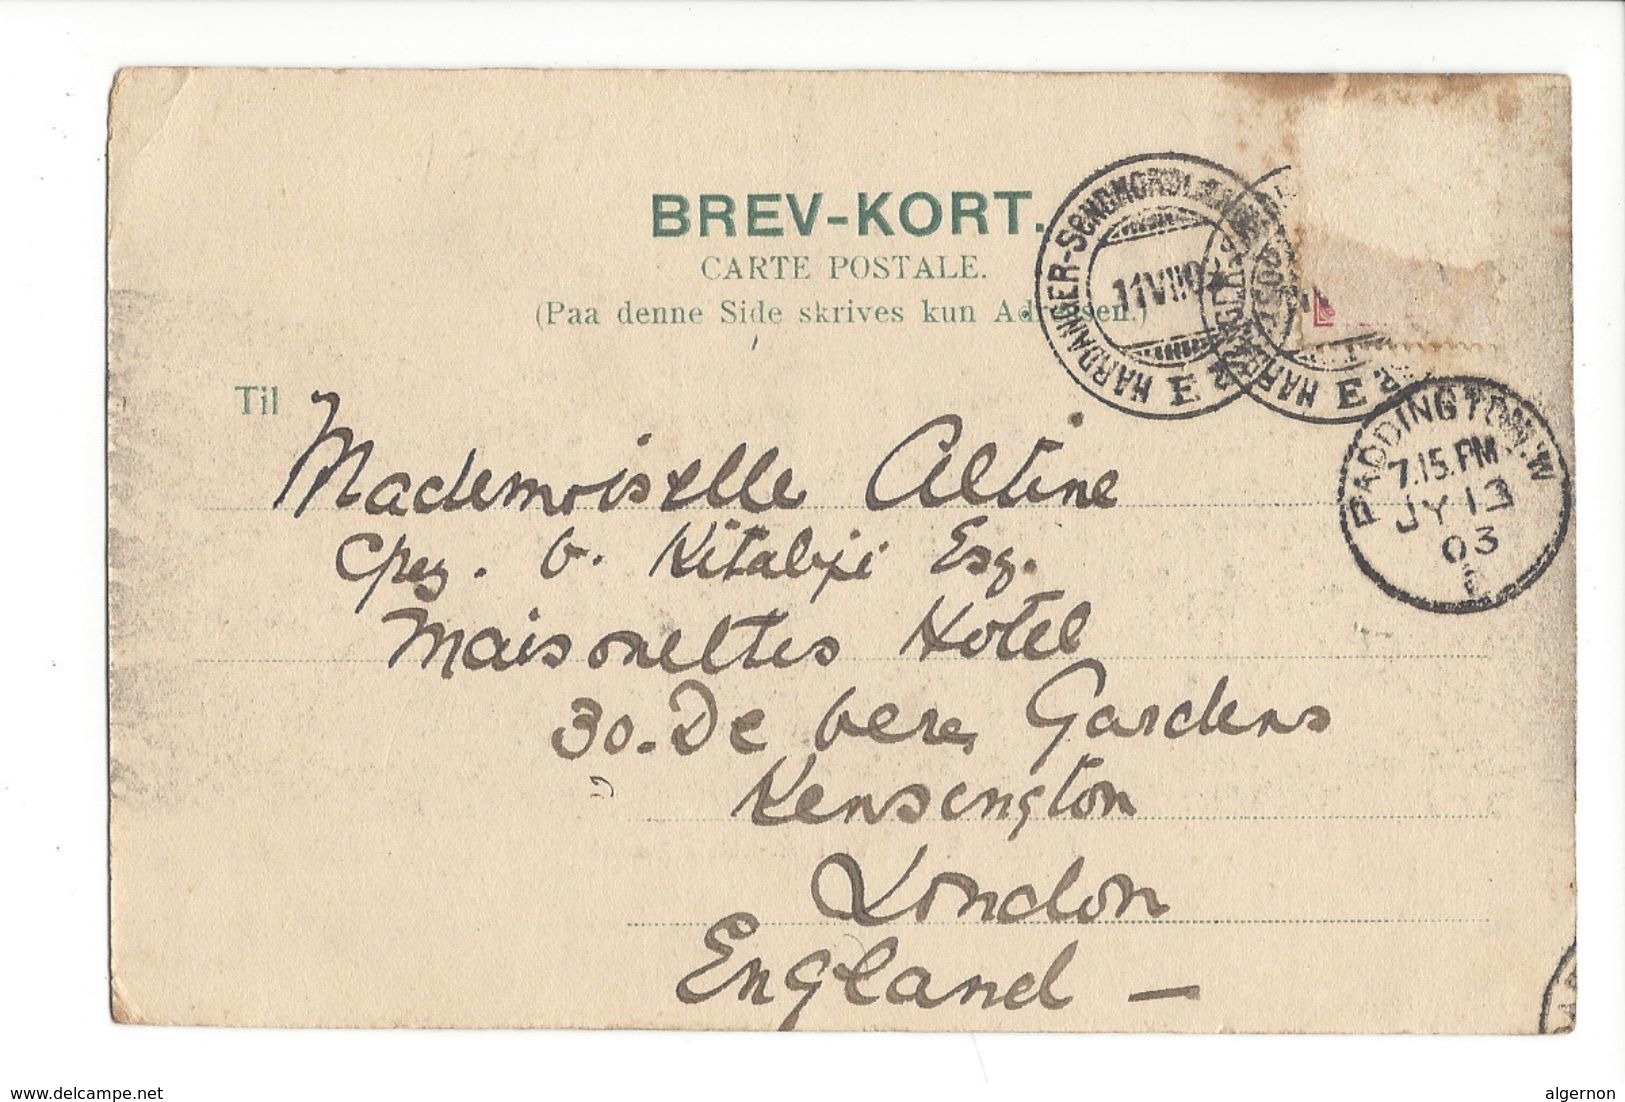 BREV-KORT.
CARTE POSTALE.
(Paa denne Side skrives kun Adressen.)
HARDANGER-SØNDHORDL
11 VII 03
E 2
HARDANGER
E 2
PADDINGTON.W
7.15.PM
JY 13
03
Til
Mademoiselle Altine
Chez. V. Kitabji Esq.
Maisonettes Hotel
30. De Vere Gardens
Kensington
London
England —
www.delcampe.net
algernon